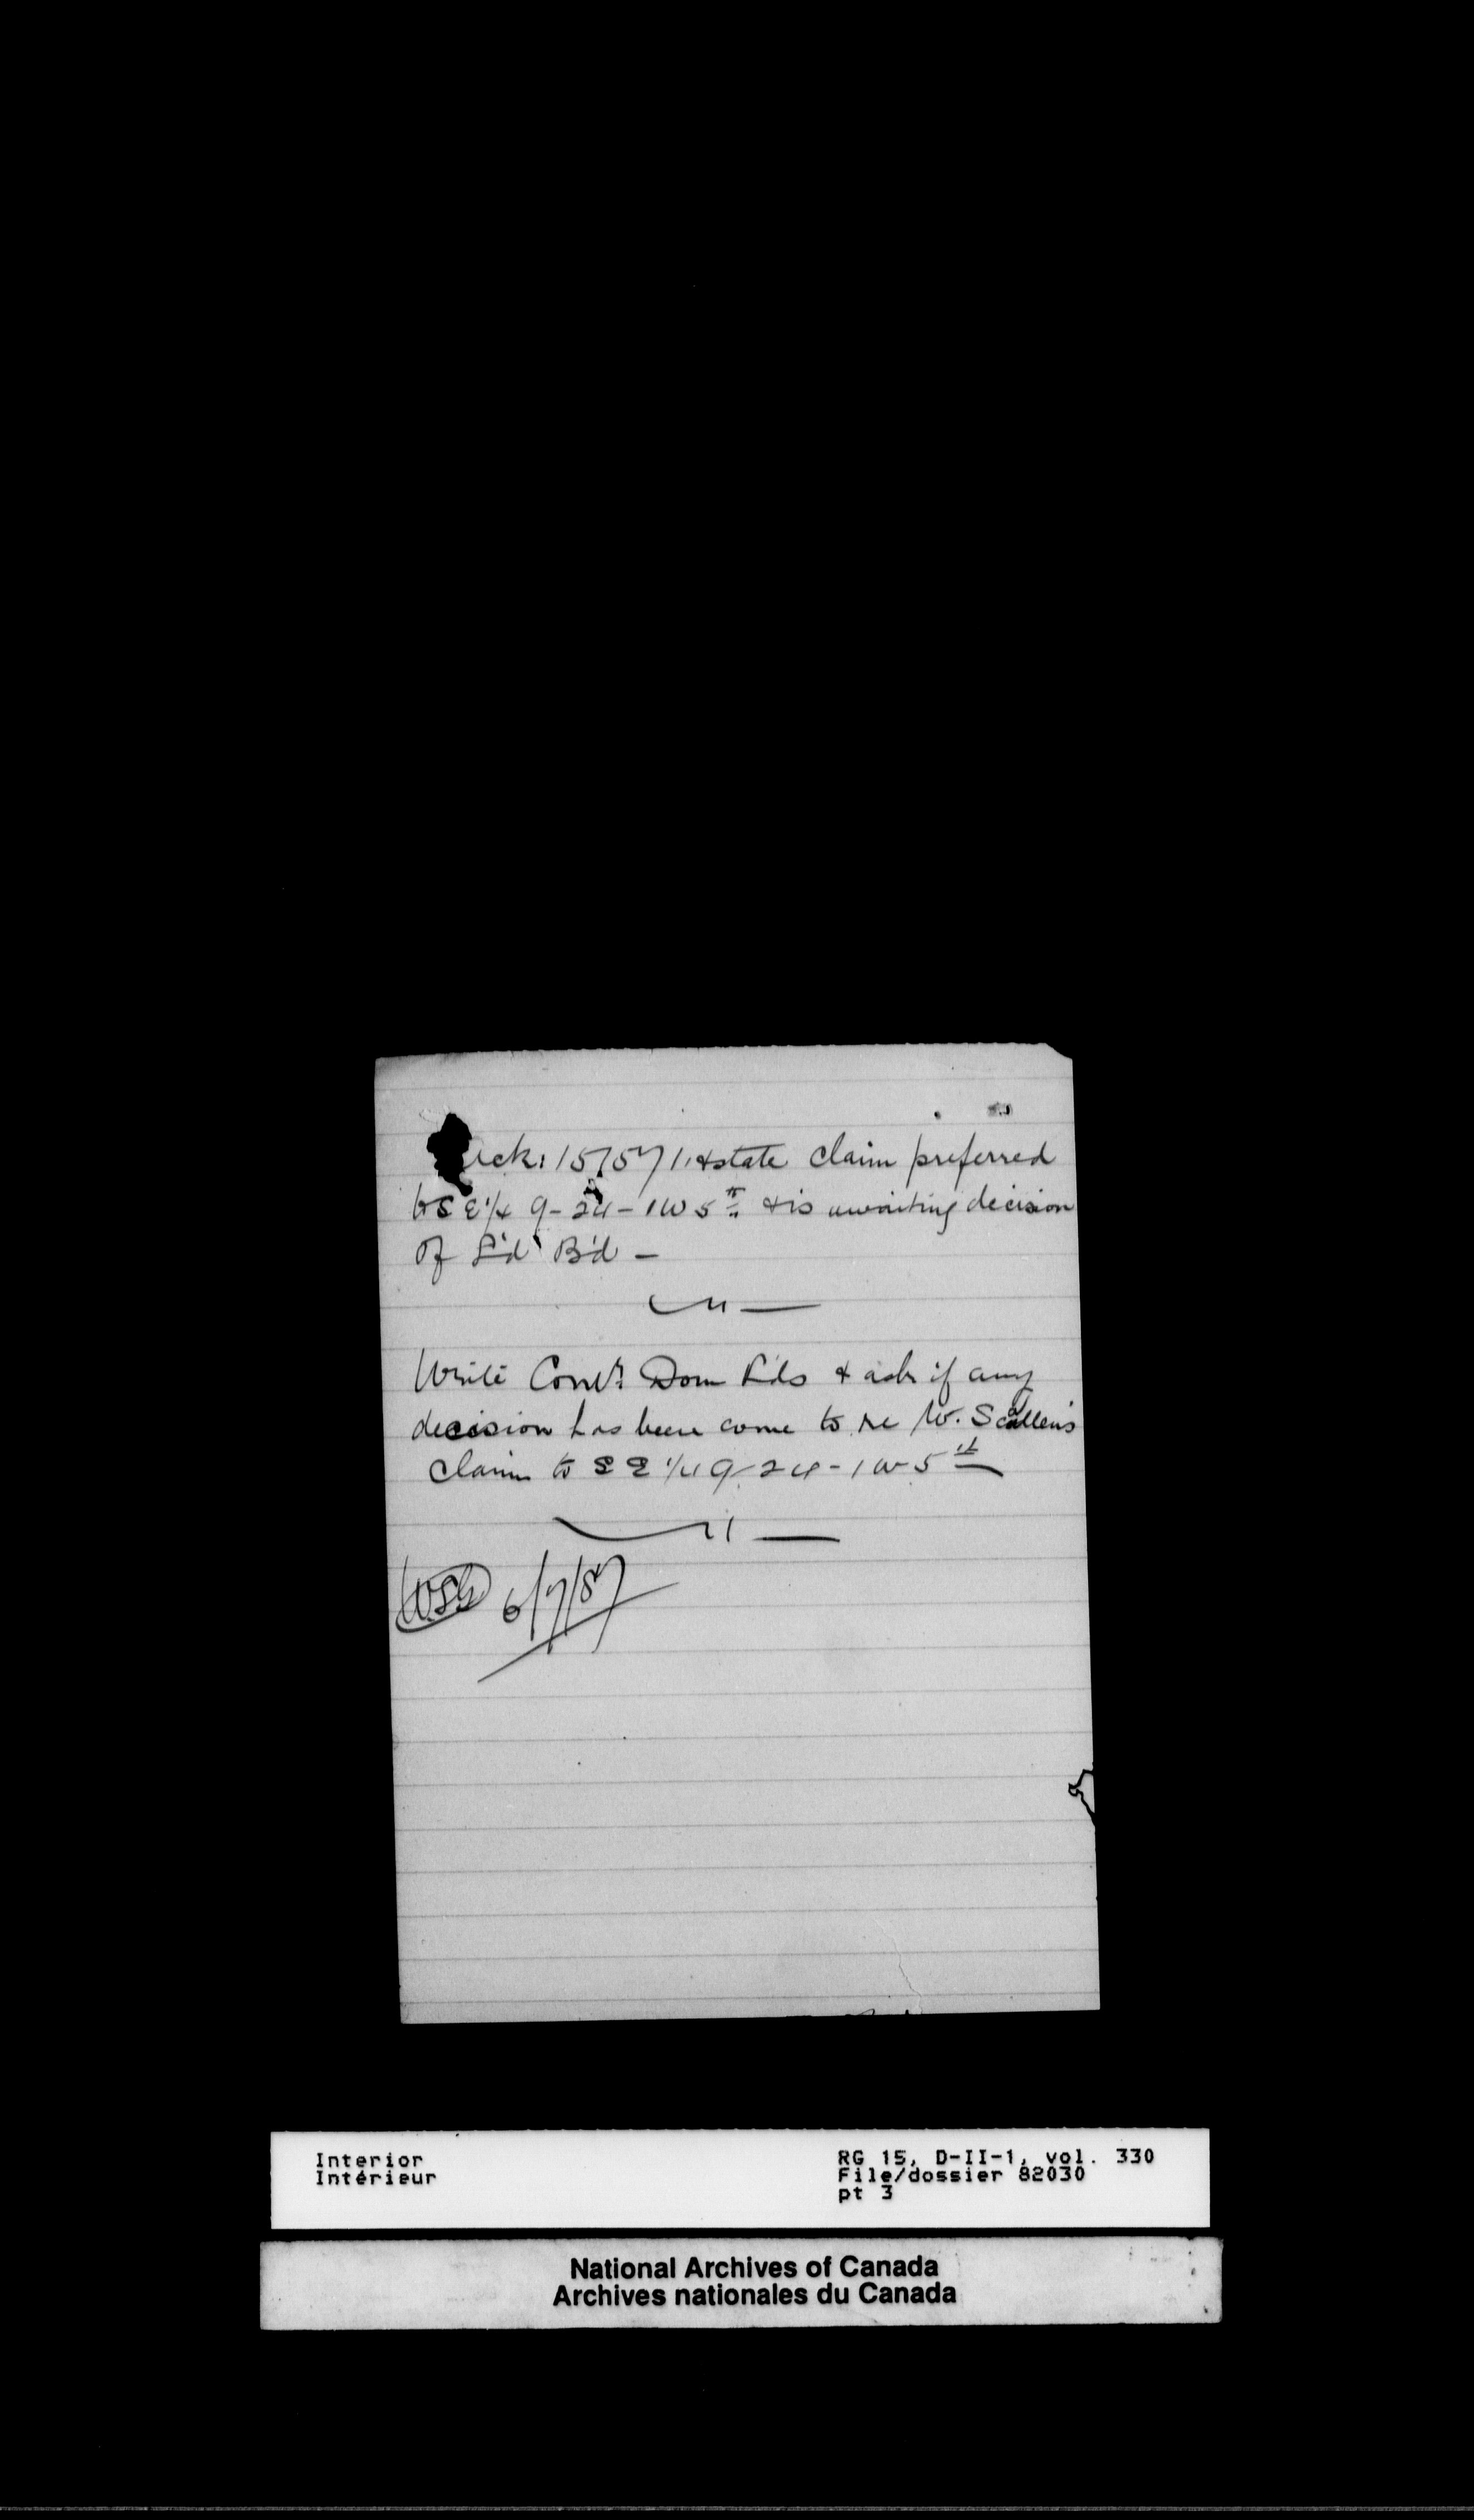 Ack: 157571. & state claim preferred
to SE 1/4 9-24-1W5th & is awaiting decision
of L'd B'd —
— " —
Write Comr. Dom Lds & ask if any
decision has been come to re W. Scallen's
claim to SE 1/4 9-24-1W5th
— " —
6/7/87
Interior
Intérieur
RG 15, D-II-1, vol. 330
File/dossier 82030
pt 3
National Archives of Canada
Archives nationales du Canada